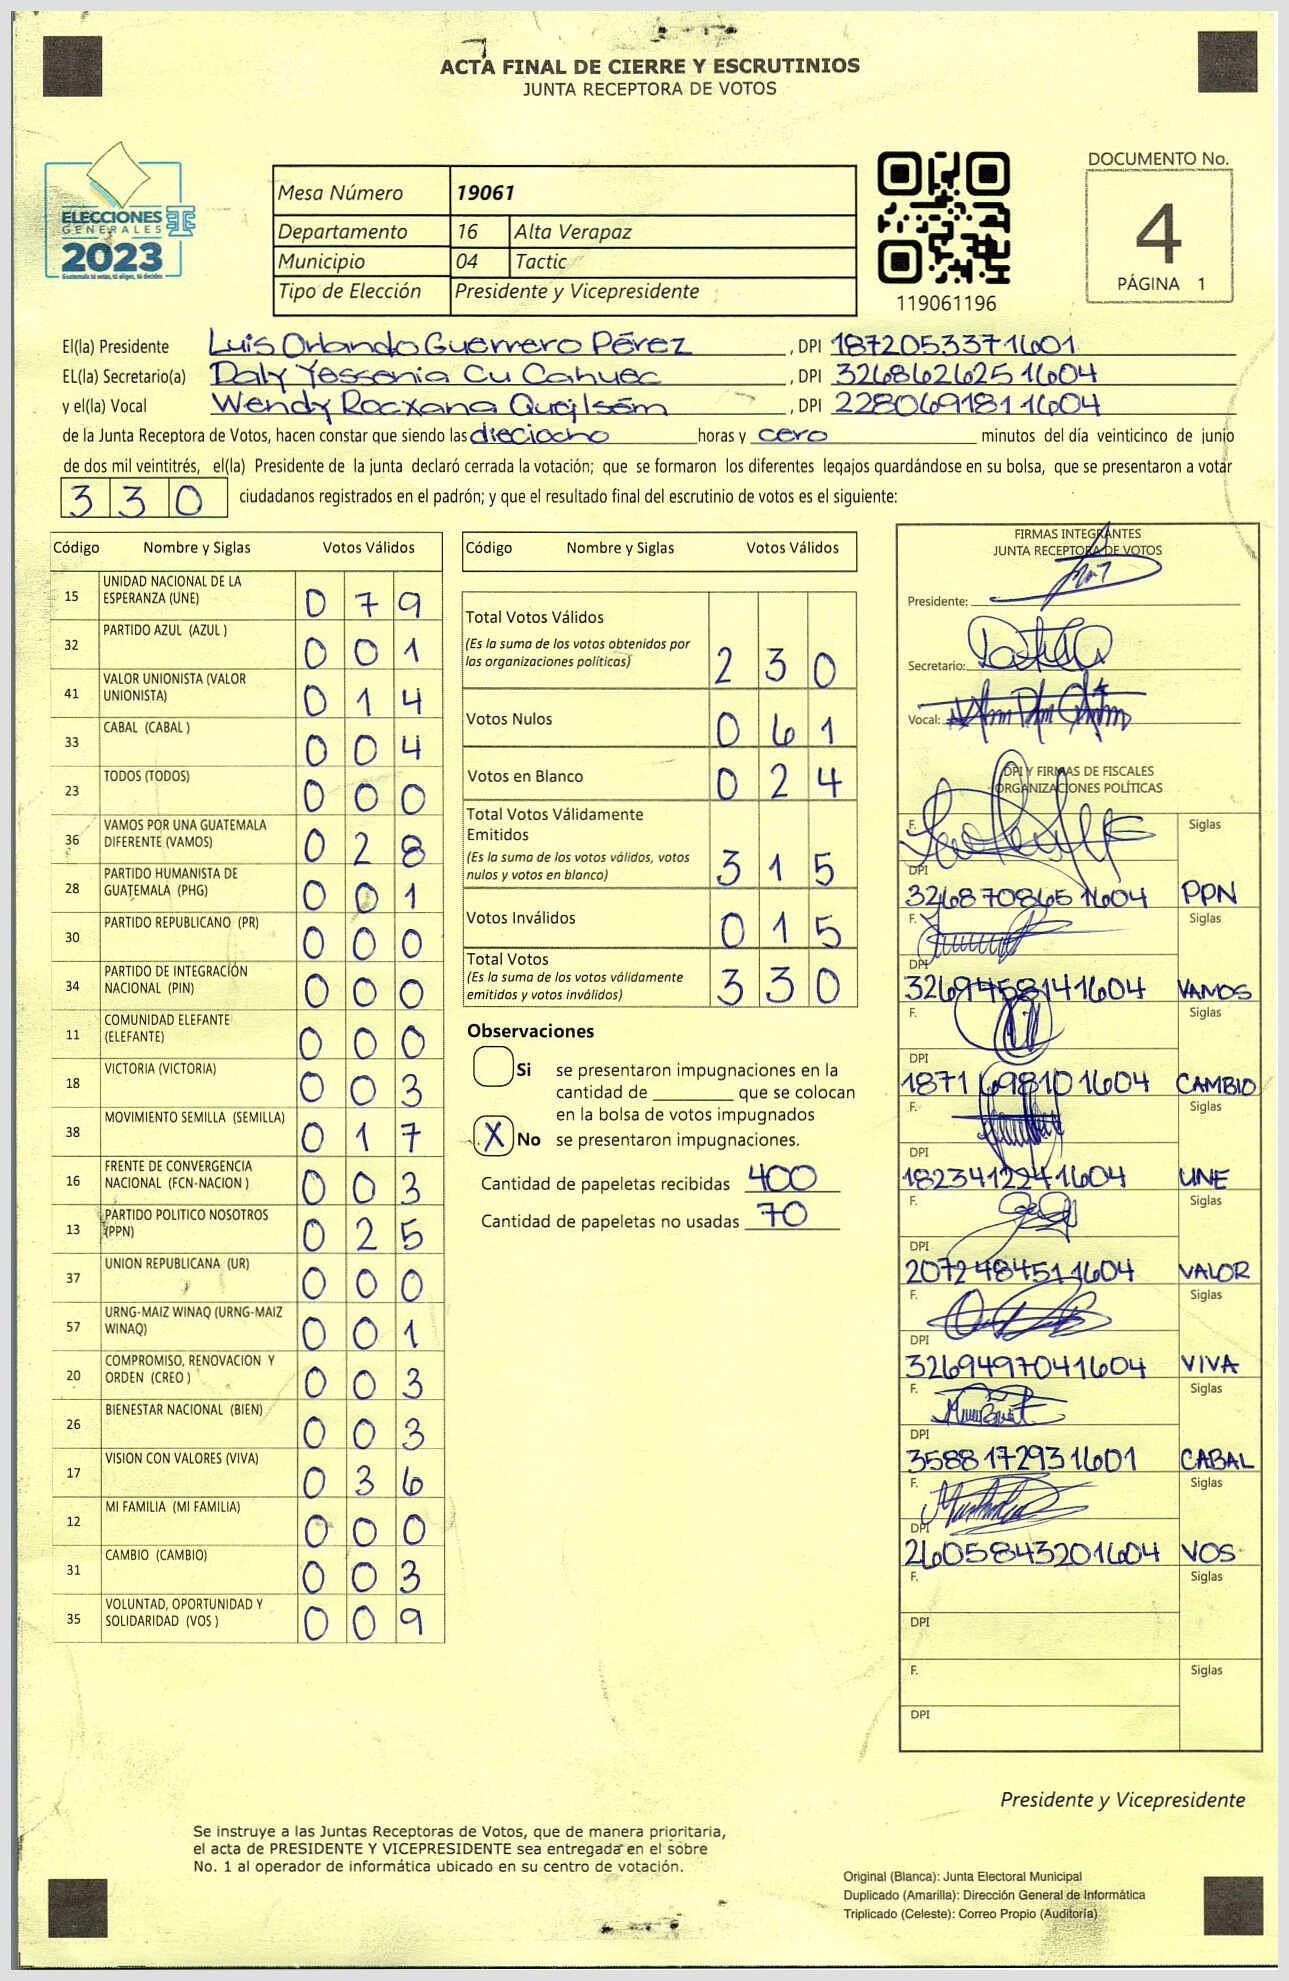 ACTA FINAL DE CIERRE Y ESCRUTINIOS
JUNTA RECEPTORA DE VOTOS
ELECCIONES
GENERALES
2023
Guatemala tú votas, tú eliges, tú decides
Mesa Número 19061
Departamento 16 Alta Verapaz
Municipio 04 Tactic
Tipo de Elección Presidente y Vicepresidente
119061196
DOCUMENTO No.
4
PÁGINA 1
El(la) Presidente Luis Orlando Guerrero Pérez, DPI 1872053371601
EL(la) Secretario(a) Daly Yessenia Cu Cahuec, DPI 3268626251604
y el(la) Vocal Wendy Rocxana Quej Isém, DPI 2280691811604
de la Junta Receptora de Votos, hacen constar que siendo las dieciocho horas y cero minutos del día veinticinco de junio
de dos mil veintitrés, el(la) Presidente de la junta declaró cerrada la votación; que se formaron los diferentes legajos quardándose en su bolsa, que se presentaron a votar
330 ciudadanos registrados en el padrón; y que el resultado final del escrutinio de votos es el siguiente:
Código Nombre y Siglas Votos Válidos
15 UNIDAD NACIONAL DE LA ESPERANZA (UNE) 079
32 PARTIDO AZUL (AZUL ) 001
41 VALOR UNIONISTA (VALOR UNIONISTA) 014
33 CABAL (CABAL ) 004
23 TODOS (TODOS) 000
36 VAMOS POR UNA GUATEMALA DIFERENTE (VAMOS) 028
28 PARTIDO HUMANISTA DE GUATEMALA (PHG) 001
30 PARTIDO REPUBLICANO (PR) 000
34 PARTIDO DE INTEGRACIÓN NACIONAL (PIN) 000
11 COMUNIDAD ELEFANTE (ELEFANTE) 000
18 VICTORIA (VICTORIA) 003
38 MOVIMIENTO SEMILLA (SEMILLA) 017
16 FRENTE DE CONVERGENCIA NACIONAL (FCN-NACION ) 003
13 PARTIDO POLITICO NOSOTROS (PPN) 025
37 UNION REPUBLICANA (UR) 000
57 URNG-MAIZ WINAQ (URNG-MAIZ WINAQ) 001
20 COMPROMISO, RENOVACION Y ORDEN (CREO ) 003
26 BIENESTAR NACIONAL (BIEN) 003
17 VISION CON VALORES (VIVA) 036
12 MI FAMILIA (MI FAMILIA) 000
31 CAMBIO (CAMBIO) 003
35 VOLUNTAD, OPORTUNIDAD Y SOLIDARIDAD (VOS ) 009
Código Nombre y Siglas Votos Válidos
Total Votos Válidos
(Es la suma de los votos obtenidos por
las organizaciones políticas) 230
Votos Nulos 061
Votos en Blanco 024
Total Votos Válidamente
Emitidos
(Es la suma de los votos válidos, votos
nulos y votos en blanco) 315
Votos Inválidos 015
Total Votos
(Es la suma de los votos válidamente
emitidos y votos inválidos) 330
Observaciones
Si se presentaron impugnaciones en la
cantidad de ________ que se colocan
en la bolsa de votos impugnados
X No se presentaron impugnaciones.
Cantidad de papeletas recibidas 400
Cantidad de papeletas no usadas 70
FIRMAS INTEGRANTES
JUNTA RECEPTORA DE VOTOS
Presidente:
Secretario:
Vocal:
DPI Y FIRMAS DE FISCALES
ORGANIZACIONES POLÍTICAS
F. Siglas
DPI
3268708651604 PPN
F. Siglas
DPI
3269458141604 VAMOS
F. Siglas
DPI
1871698101604 CAMBIO
F. Siglas
DPI
1823412241604 UNE
F. Siglas
DPI
2072484511604 VALOR
F. Siglas
DPI
3269497041604 VIVA
F. Siglas
DPI
3588172931601 CABAL
F. Siglas
DPI
2605843201604 VOS
F. Siglas
DPI
F. Siglas
DPI
Presidente y Vicepresidente
Se instruye a las Juntas Receptoras de Votos, que de manera prioritaria,
el acta de PRESIDENTE Y VICEPRESIDENTE sea entregada en el sobre
No. 1 al operador de informática ubicado en su centro de votación.
Original (Blanca): Junta Electoral Municipal
Duplicado (Amarilla): Dirección General de Informática
Triplicado (Celeste): Correo Propio (Auditoría)